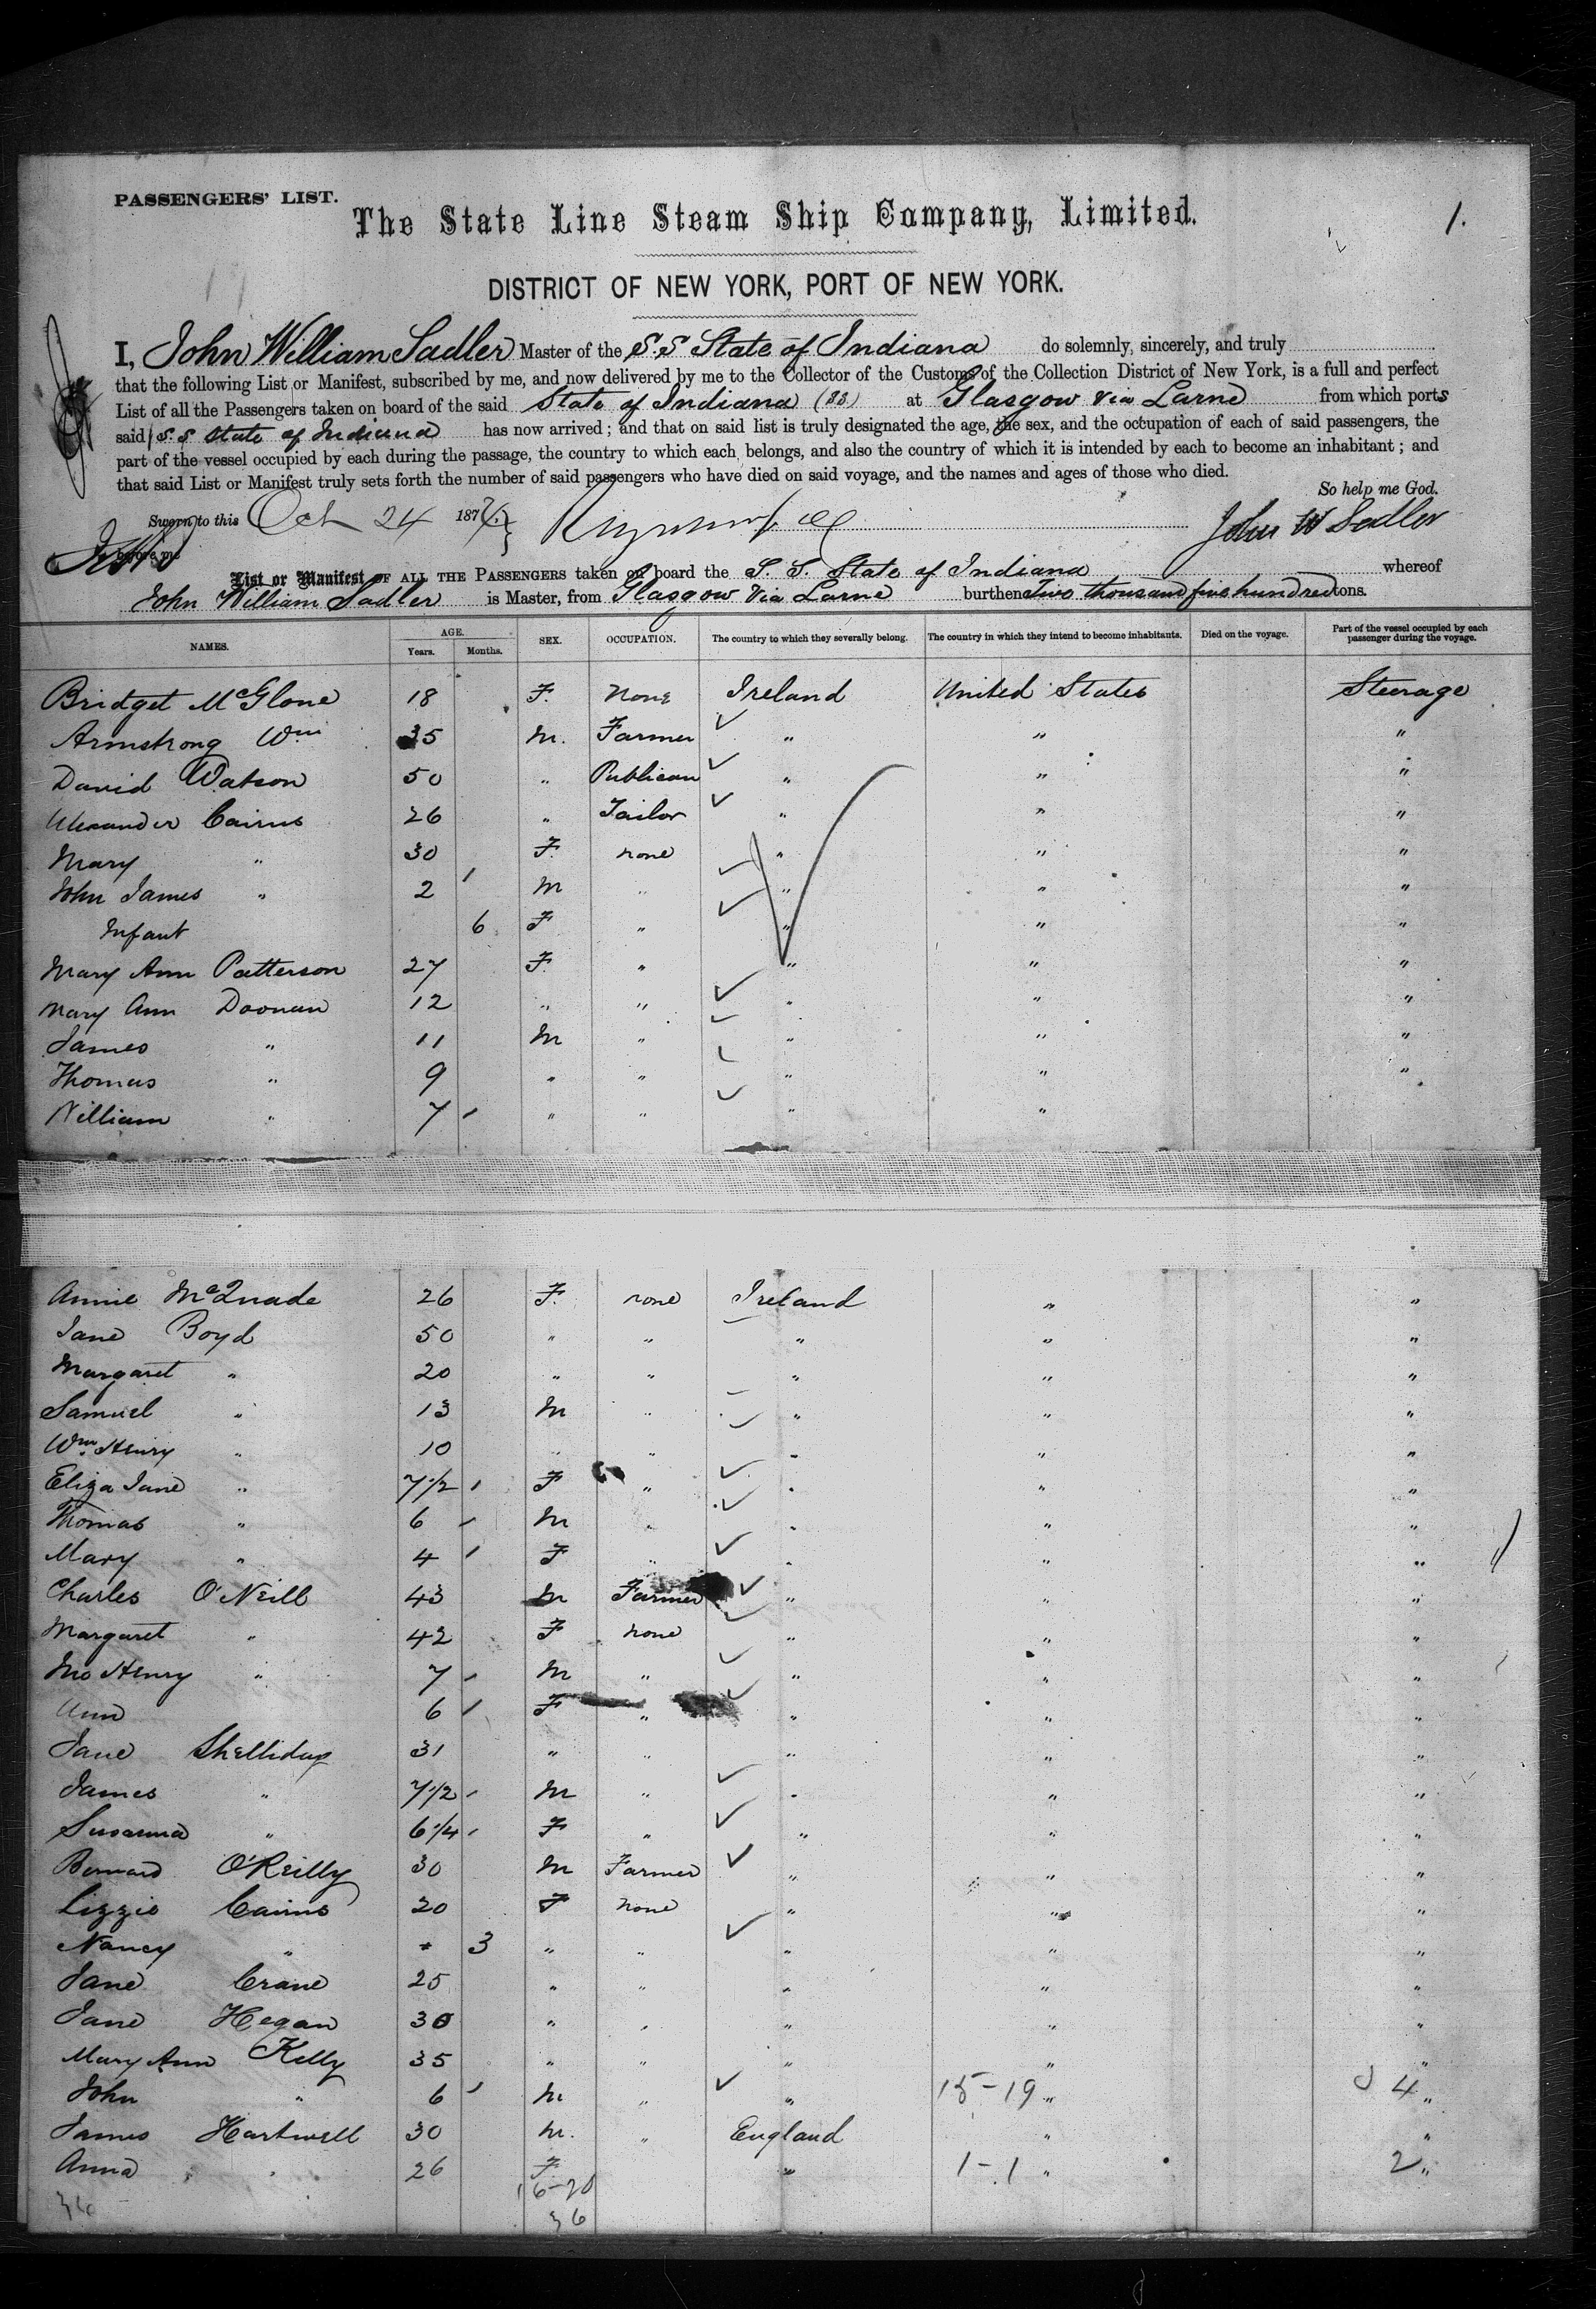 PASSENGERS' LIST.
1.
The State Line Steam Ship Company, Limited.
DISTRICT OF NEW YORK, PORT OF NEW YORK.
I, John William Sadler Master of the S.S State of Indiana do solemnly, sincerely, and truly
that the following List or Manifest, subscribed by me, and now delivered by me to the Collector of the Customs of the Collection District of New York, is a full and perfect
List of all the Passengers taken on board of the said State of Indiana (SS) at Glasgow via Larne from which ports
said S.S State of Indiana has now arrived; and that on said list is truly designated the age, the sex, and the occupation of each of said passengers, the
part of the vessel occupied by each during the passage, the country to which each belongs, and also the country of which it is intended by each to become an inhabitant; and
that said List or Manifest truly sets forth the number of said passengers who have died on said voyage, and the names and ages of those who died.
So help me God.
Sworn to this Oct 24 187 John W Sadler
before me
List or Manifest OF ALL THE PASSENGERS taken on board the S. S. State of Indiana whereof
John William Sadler is Master, from Glasgow via Larne burthen Two thousand five hundred tons.
NAMES. AGE. Years. Months. SEX. OCCUPATION. The country to which they severally belong. The country in which they intend to become inhabitants. Died on the voyage. Part of the vessel occupied by each passenger during the voyage.
Bridget McGlone 18 F. None Ireland United States Steerage
Armstrong Wm 35 M. Farmer " " "
David Watson 50 " Publican " " "
Alexander Cairns 26 " Tailor " " "
Mary " 30 F. none " " "
John James " 2 M " " " "
Infant 6 F " " " "
Mary Ann Patterson 27 F. " " " "
Mary Ann Doonan 12 " " " " "
James " 11 M " " " "
Thomas " 9 " " " " "
William " 7 " " " "
Annie McQuade 26 F. none Ireland " "
Jane Boyd 50 " " " " "
Margaret " 20 " " " " "
Samuel " 13 M " " " "
Wm Henry " 10 " " " " "
Eliza Jane " 7 1/2 F " " " "
Thomas " 6 M " " " "
Mary " 4 F " " " "
Charles O'Neill 43 M Farmer " " "
Margaret " 42 F none " " "
Jno Henry " 7 M " " " "
Ann 6 F " " " "
Jane Shelliday 31 " " " " "
James " 7 1/2 M " " " "
Susanna " 6 1/4 F " " " "
Bernard O'Reilly 30 M Farmer " " "
Lizzie Cairns 20 F none " " "
Nancy " 3 " " " " "
Jane Crane 25 " " " " "
Jane Hegan 30 " " " " "
Mary Ann Kelly 35 " " " " "
John " 6 M " " 15-19 " 4 "
James Hartwell 30 M. " England " "
Anna " 26 F. " 1-1 " 2 "
16-20
36 36